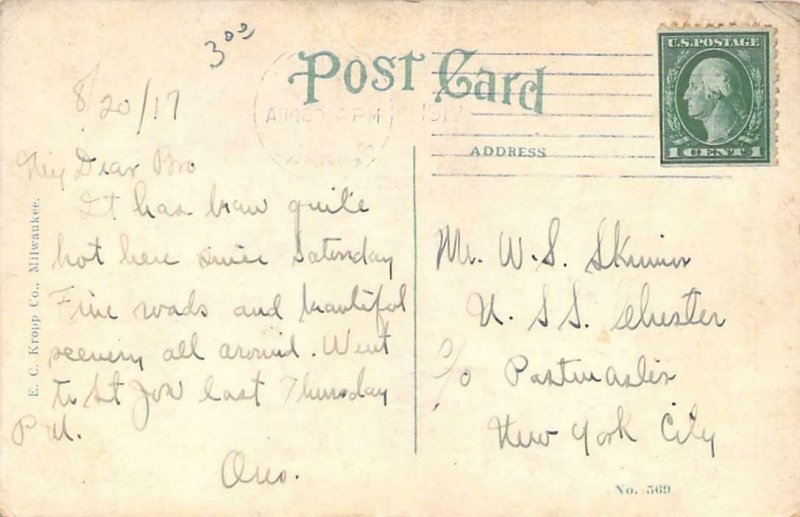 3 00
Post Card
U.S. POSTAGE
1 CENT 1
8/20/17
AUG 3 PM 1917
ADDRESS
My Dear Bro
It has been quite
hot here since Saturday
Fine roads and beautiful
scenery all around. Went
to St Joe last Thursday
P.M.
E. C. Kropp Co., Milwaukee.
Mr. W. S. Skinner
U. S S. Chester
c/o Postmaster
New York City
No. 569